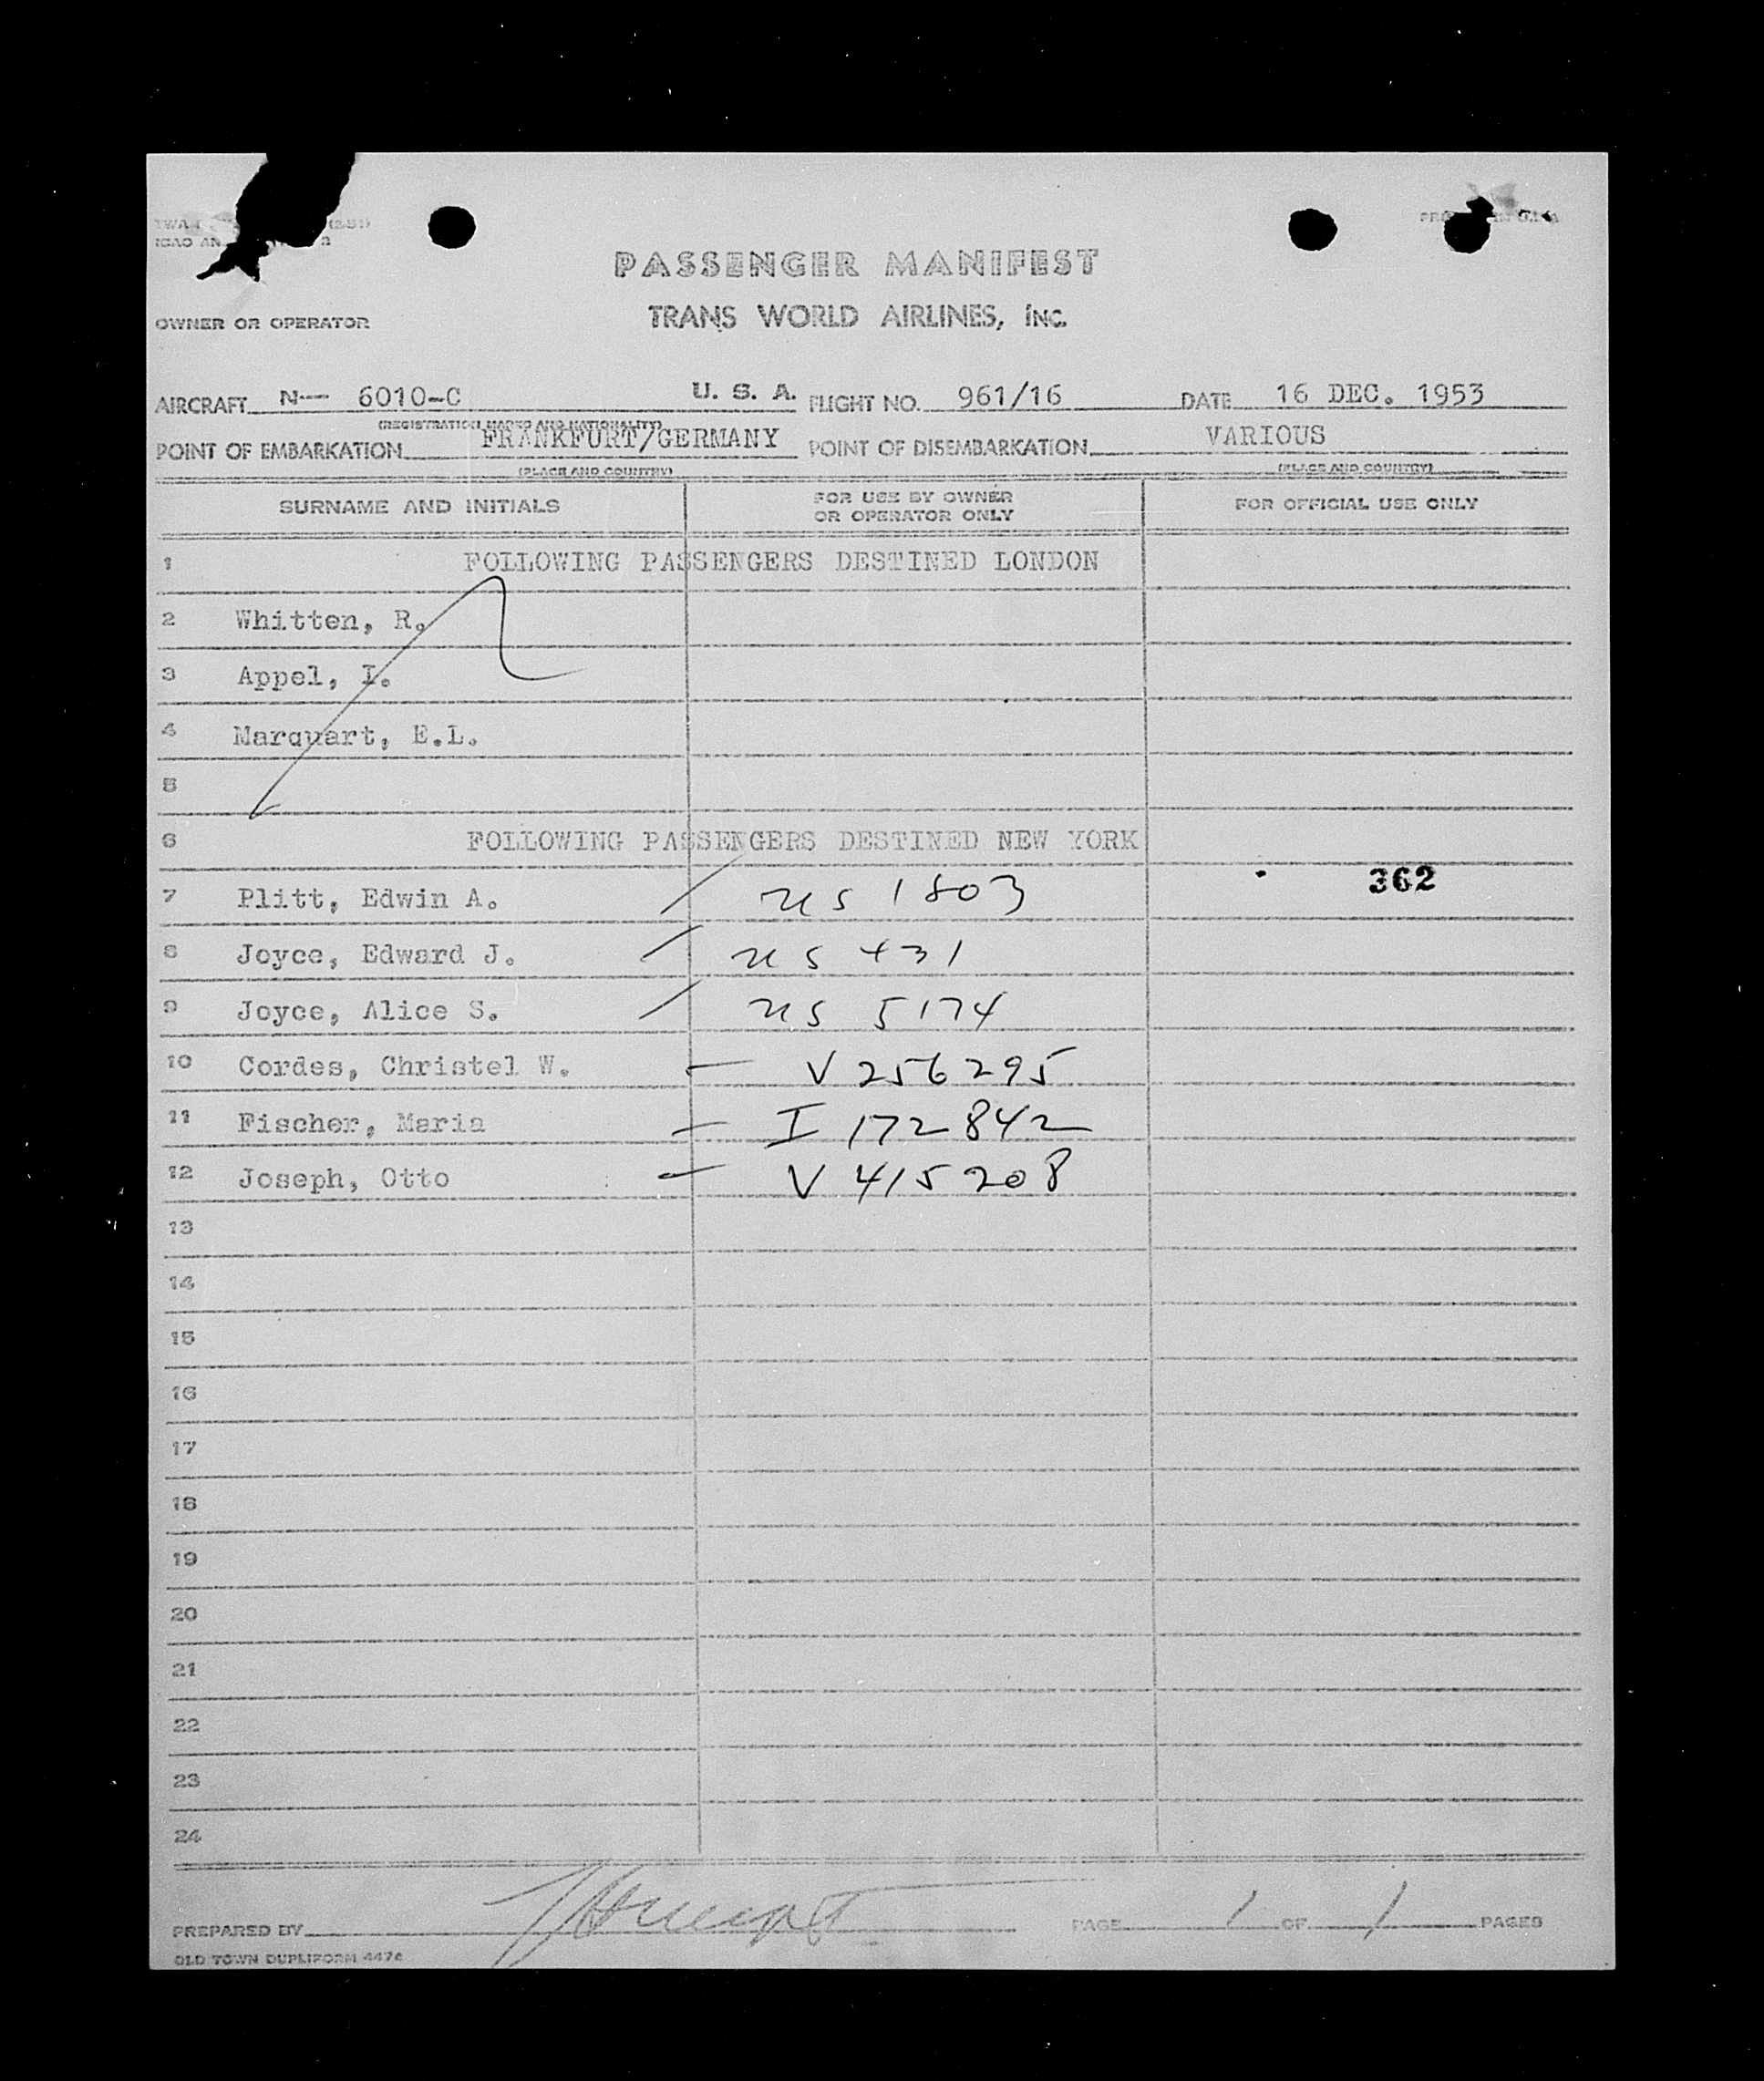 PASSENGER MANIFEST
OWNER OR OPERATOR TRANS WORLD AIRLINES, INC.
AIRCRAFT N— 6010-C U. S. A. FLIGHT NO. 961/16 DATE 16 DEC. 1953
(REGISTRATION MARKS AND NATIONALITY)
POINT OF EMBARKATION FRANKFURT/GERMANY POINT OF DISEMBARKATION VARIOUS
(PLACE AND COUNTRY) (PLACE AND COUNTRY)
SURNAME AND INITIALS FOR USE BY OWNER OR OPERATOR ONLY FOR OFFICIAL USE ONLY
1 FOLLOWING PASSENGERS DESTINED LONDON
2 Whitten, R.
3 Appel, I.
4 Marquart, E.L.
5
6 FOLLOWING PASSENGERS DESTINED NEW YORK
7 Plitt, Edwin A. US 1803 362
8 Joyce, Edward J. US 431
9 Joyce, Alice S. US 5174
10 Cordes, Christel W. V 256295
11 Fischer, Maria I 172842
12 Joseph, Otto V 415208
13
14
15
16
17
18
19
20
21
22
23
24
PREPARED BY PAGE 1 OF 1 PAGES
OLD TOWN DUPLIFORM 4474